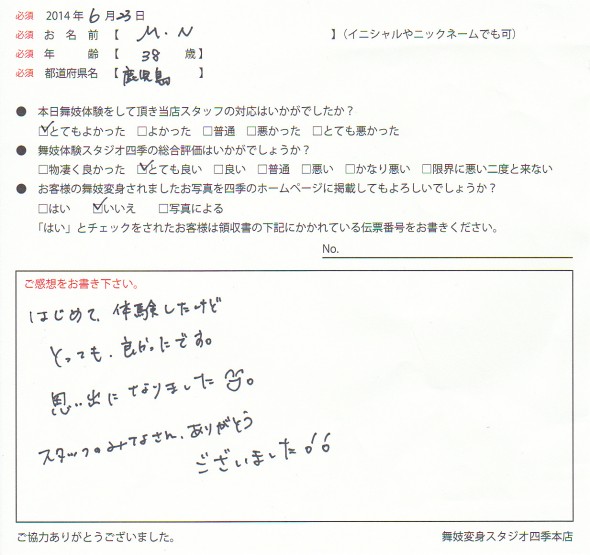 必須 2014年 6月 23日
必須 お名前【 M.N 】(イニシャルやニックネームでも可)
必須 年齢【 38 歳】
必須 都道府県名【鹿児島】
● 本日舞妓体験をして頂き当店スタッフの対応はいかがでしたか?
☑とてもよかった □よかった □普通 □悪かった □とても悪かった
● 舞妓体験スタジオ四季の総合評価はいかがでしょうか?
□物凄く良かった ☑とても良い □良い □普通 □悪い □かなり悪い □限界に悪い二度と来ない
● お客様の舞妓変身されましたお写真を四季のホームページに掲載してもよろしいでしょうか?
□はい ☑いいえ □写真による
「はい」とチェックをされたお客様は領収書の下記にかかれている伝票番号をお書きください。
No.
ご感想をお書き下さい。
はじめて、体験したけど
とっても、良かったです。
思い出になりました☺。
スタッフのみなさん、ありがとう
ございました!!
ご協力ありがとうございました。 舞妓変身スタジオ四季本店